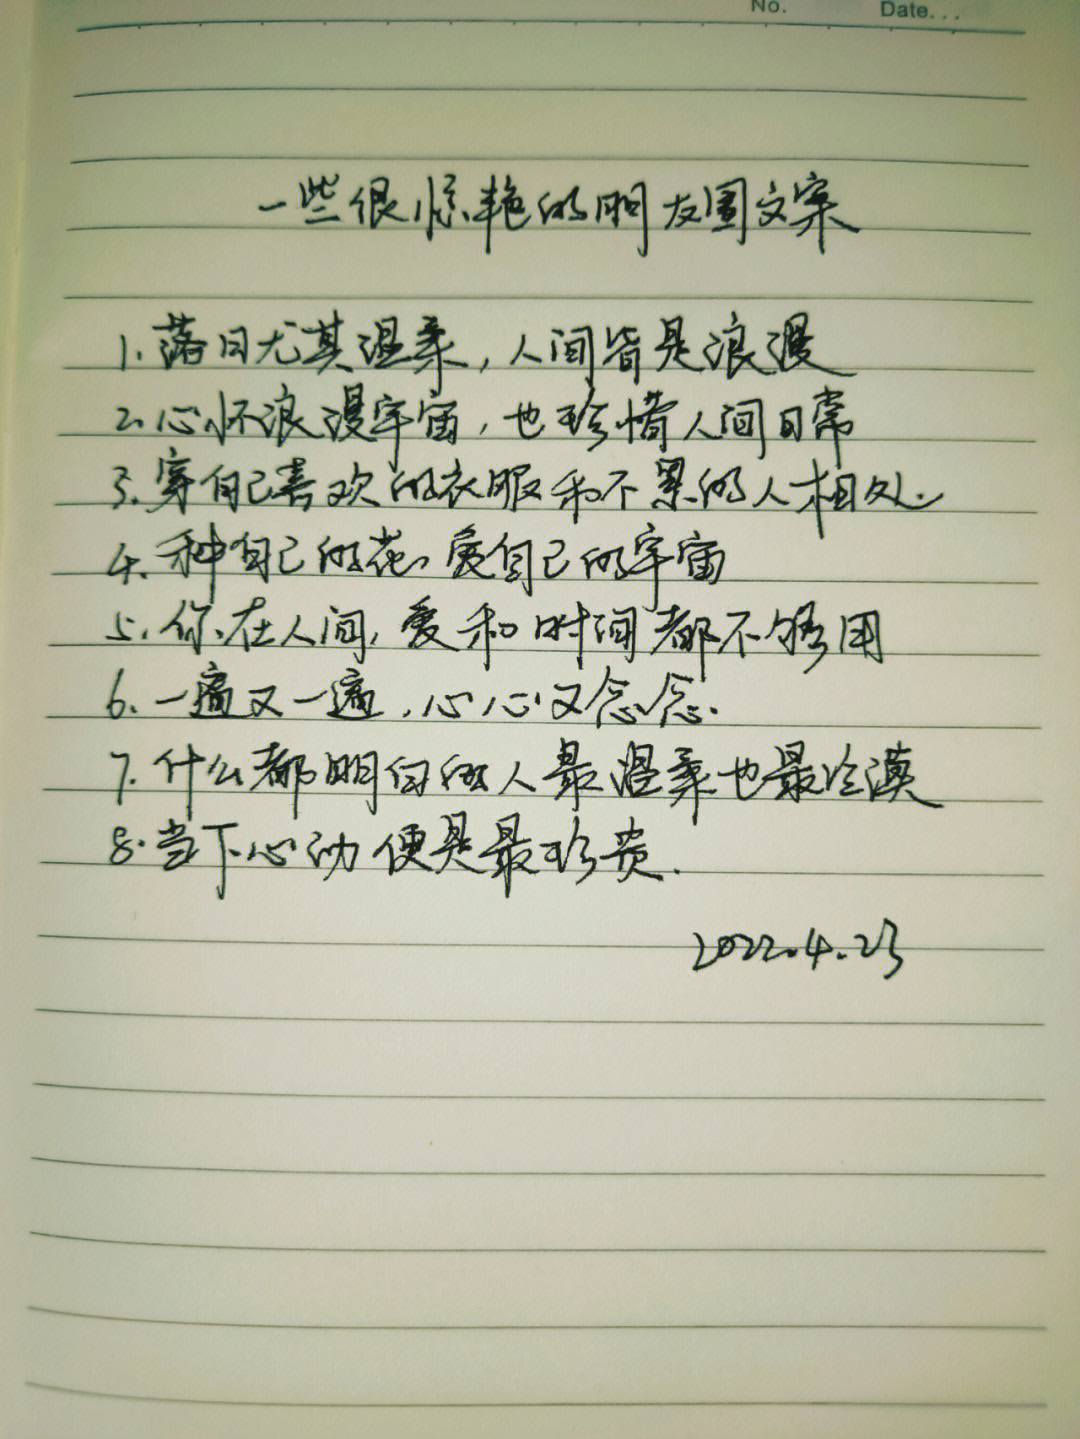 No. Date...
一些很惊艳的朋友圈文案
1.落日尤其温柔,人间皆是浪漫
2.心怀浪漫宇宙,也珍惜人间日常
3.穿自己喜欢的衣服和不累的人相处.
4.种自己的花,爱自己的宇宙
5.你在人间,爱和时间都不够用
6.一遍又一遍,心心又念念.
7.什么都明白的人最温柔也最冷漠
8.当下心动便是最珍贵.
2022.4.23